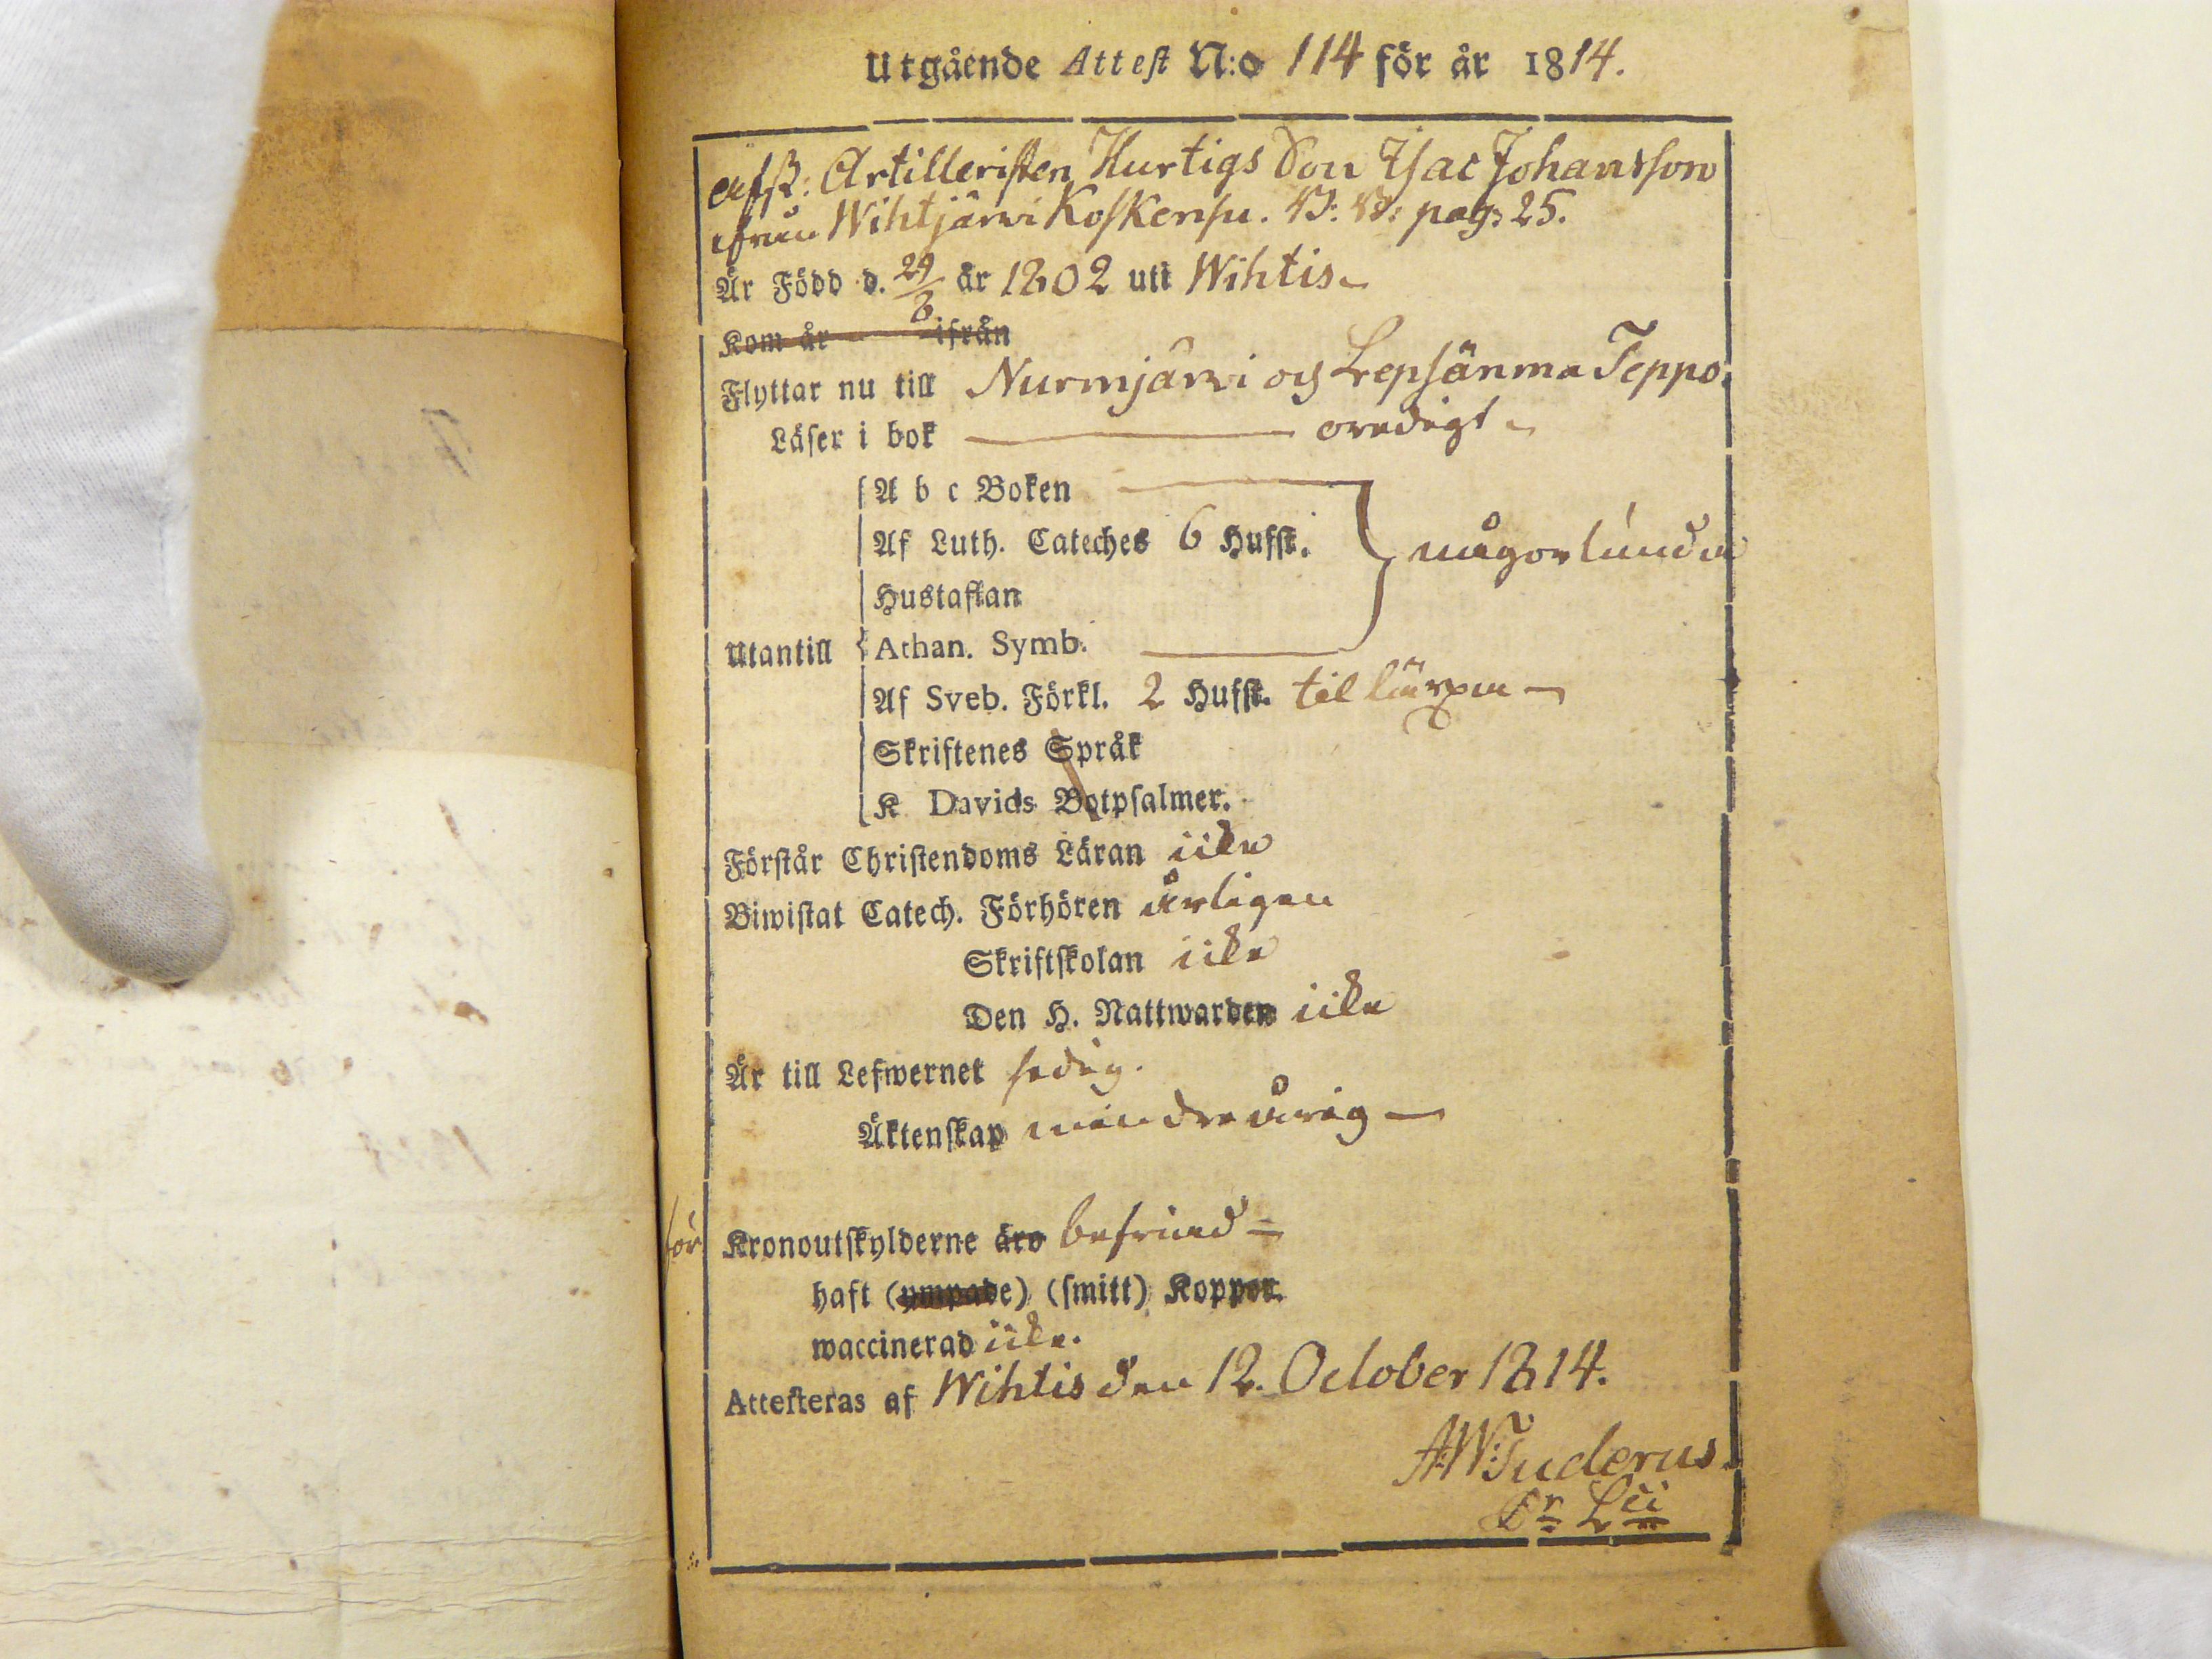 Utgående Attest N:o 114 för år 1814.
afsk: Artilleristen Hurtigs Son Isac Johansson
ifrån Wihtjärwi Koskensu. pag: 25.
Är Född d. 29/8 år 1802 uti Wihtis
Kom år ifrån
Flyttar nu till Nurmjärwi och Lepsänma Teppo.
Läser i bok oredigt
A b c Boken
Af Luth. Cateches 6 Hufst. någorlunda
Hustaflan
Utantill Athan. Symb.
Af Sveb. Förkl. 2 Hufst.
Skriftenes Språk
K Davids Botpsalmer.
Förstår Christendoms Läran icke
Biwistat Catech. Förhören årligen
Skriftskolan icke
Den H. Nattwarden icke
Är till Lefwernet sedig.
Äktenskap minderårig
för Kronoutskylderne äro befriad
haft (ympade) (smitt) Koppor.
waccinerad icke.
Attesteras af Wihtis den 12. October 1814.
A:W:Tuderus.